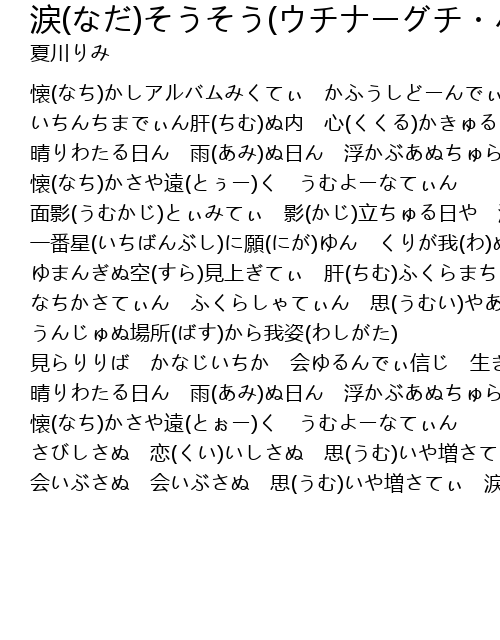 涙(なだ)そうそう(ウチナーグチ・
夏川りみ
懐(なち)かしアルバムみくてぃ　かふうしどーんでぃ
いちんちまでぃん肝(ちむ)ぬ内　心(くくる)かきゅる
晴りわたる日ん　雨(あみ)ぬ日ん　浮かぶあぬちゅら
懐(なち)かさや遠(とぅー)く　うむよーなてぃん
面影(うむかじ)とぃみてぃ　影(かじ)立ちゅる日や
一番星(いちばんぶし)に願(にが)ゆん　くりが我(わ)ぬ
ゆまんぎぬ空(すら)見上ぎてぃ　肝(ちむ)ふくらまち
なちかさてぃん　ふくらしゃてぃん　思(うむい)やあ
うんじゅぬ場所(ばす)から我姿(わしがた)
見らりりば　かなじいちか　会ゆるんでぃ信じ　生き
晴りわたる日ん　雨(あみ)ぬ日ん　浮かぶあぬちゅら
懐(なち)かさや遠(とぉー)く　うむよーなてぃん
さびしさぬ　恋(くい)いしさぬ　思(うむ)いや増さて
会いぶさぬ　会いぶさぬ　思(うむ)いや増さてぃ　涙